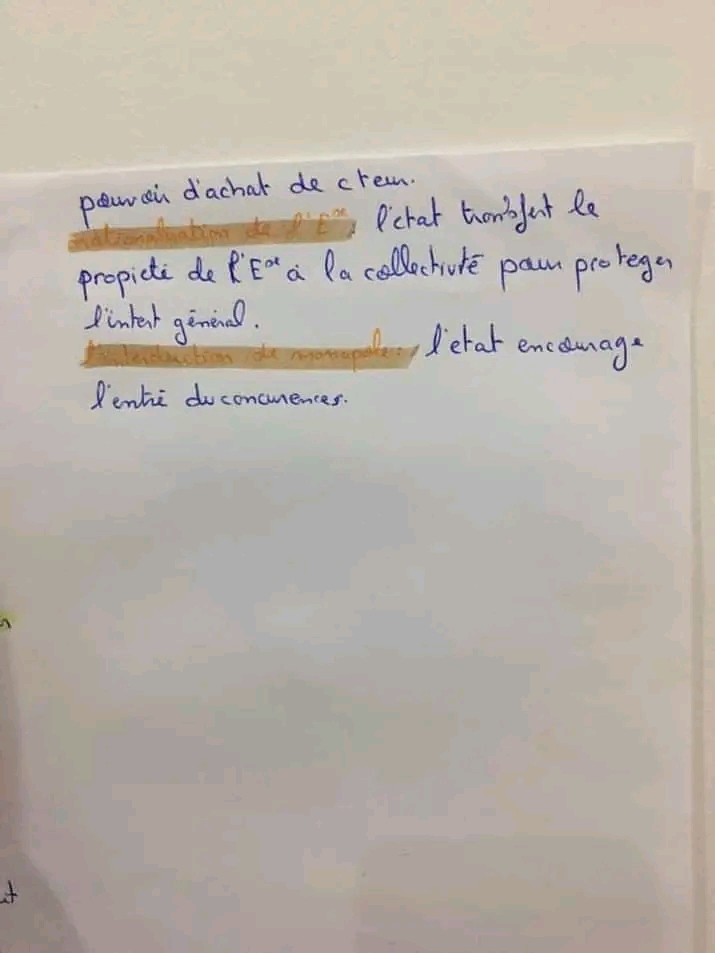 pouvoir d'achat de cteur.
nationalisation de l'Ese, l'état transfert le
propieté de l'Ese à la collectivité pour proteger
l'intert général.
l'interdiction de monopole : l'etat encourage
l'entré du concurences.